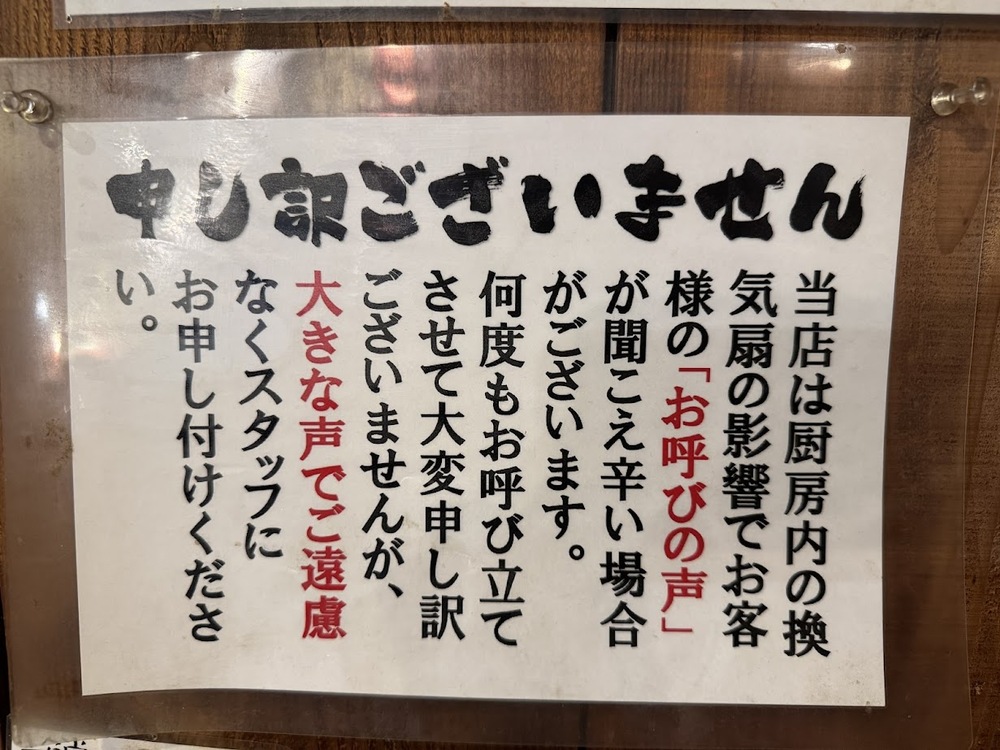 申し訳ございません
当店は厨房内の換
気扇の影響でお客
様の「お呼びの声」
が聞こえ辛い場合
がございます。
何度もお呼び立て
させて大変申し訳
ございませんが、
大きな声でご遠慮
なくスタッフに
お申し付けくださ
い。